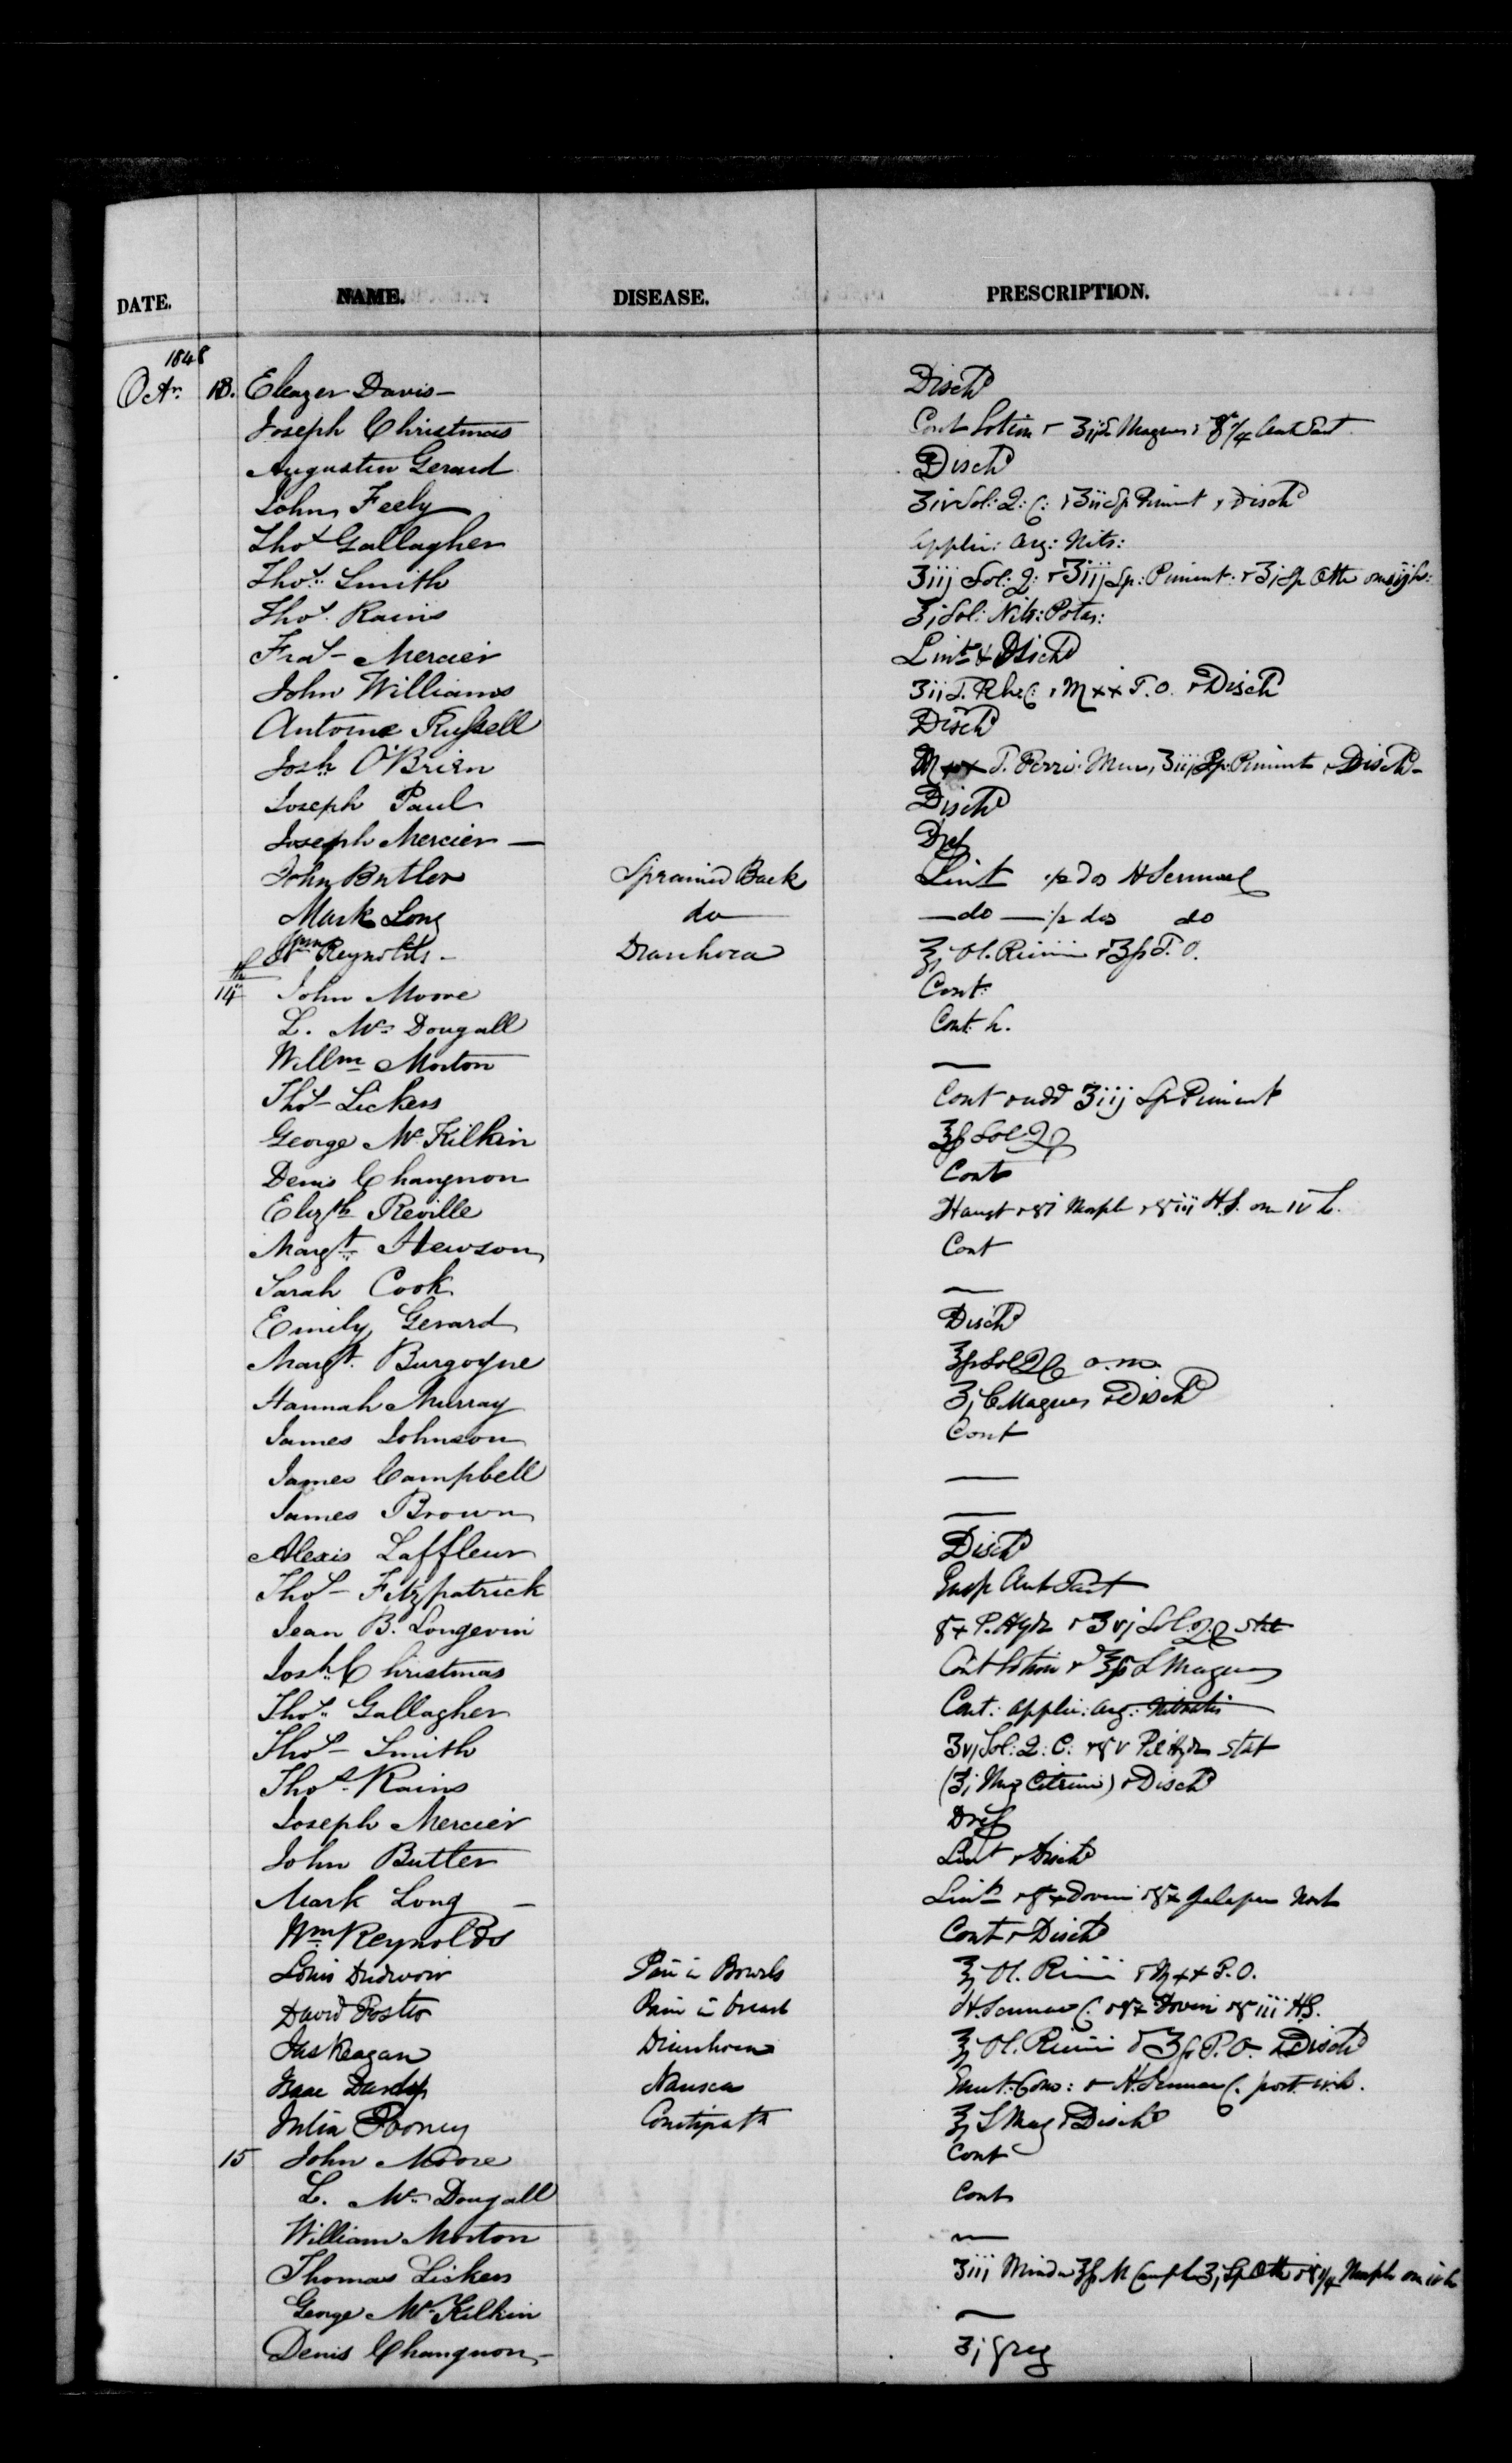 DATE. NAME. DISEASE. PRESCRIPTION.
1848
Octr. 13. Eleazer Davis - Dischd
Joseph Christmas Cont Lotion + ʒij S Magnes + gr 1/4 Ant Tart
Augustin Gerard Dischd
John Feely ʒiv Sol: Q: C: + ʒii Sp Piment + Dischd
Thos Gallagher Applic: Arg: Nits:
Thos. Smith ʒiij Sol: Q: + ʒiij Sp: Piment: + ʒi Sp Æth
Thos. Rains ʒi Sol: Nits: Potas:
Fras - Mercier Lint & Dischd
John Williams ʒii T. Rhei C: + M xx T.O. + Disch
Antoine Russell Dischd
Josh. O'Brien M xx T. Ferri: Mur, ʒiij Sp: Piment + Disch -
Joseph Paul Dischd
Joseph Mercier —
John Butler Sprained Back Lint 1/2 dos H Sennae C
Mark Long do — do — 1/2 dos do
Wm Reynolds - Diarrhoea ℥i Ol. Ricini + ʒss T.O.
14th John Moore Cont:
L. Mc Dougall Cont. h.
Willm Morton —
Thos - Lickers Cont & add ʒiij Sp Piment
George Mc Kilkin ℥ss Sol Q C
Denis Changnon Cont
Elizth Reville Haust + gr i Morph + gr iii H.S. om iv h.
Margt. Hewson Cont
Sarah Cook —
Emily Gerard Dischd
Margt. Burgoyne ℥ss Sol Q C o.m.
Hannah Murray ʒi C Magnes + Dischd
James Johnson Cont
James Campbell —
James Brown —
Alexis Laffleur Dischd
Thos - Fitzpatrick Ant Tart
Jean B. Longevin gr x P. Hydr + ʒvj Sol. Q. C stat
Josh. Christmas Cont Lotion + ℥ss S Magnes
Thos. Gallagher Cont: Applic: Arg: Nitratis
Thos - Smith ʒvj Sol: Q: C: + gr v Pil Hydr stat
Thos. Rains (ʒi Ung Citrini) + Dischd
Joseph Mercier
John Butler Lint + Dischd
Mark Long - Lint + gr x Doveri + gr x Jalapae Noct
Wm Reynolds Cont + Dischd
Louis Pain in Bowels ℥i Ol. Ricini + M xx T.O.
David Foster Pain in breast H. Sennae C. + gr x Doveri + gr iii H.S.
Jas Keagan Diarrhoea ℥i Ol. Ricini + ʒss T.O. + Dischd
Isaac Nausea Emet: Com: + H. Sennae C. post iv. h.
Julia Rooney Constipatn ℥i S Mag + Dischd
15 John Moore Cont
L. Mc. Dougall Cont
William Morton —
Thomas Lickers ʒiii Minder ℥ss M Camph ʒi Sp Æth + gr 1/4 Morph om iv h
George Mc Kilkin —
Denis Changnon - ʒi Greg